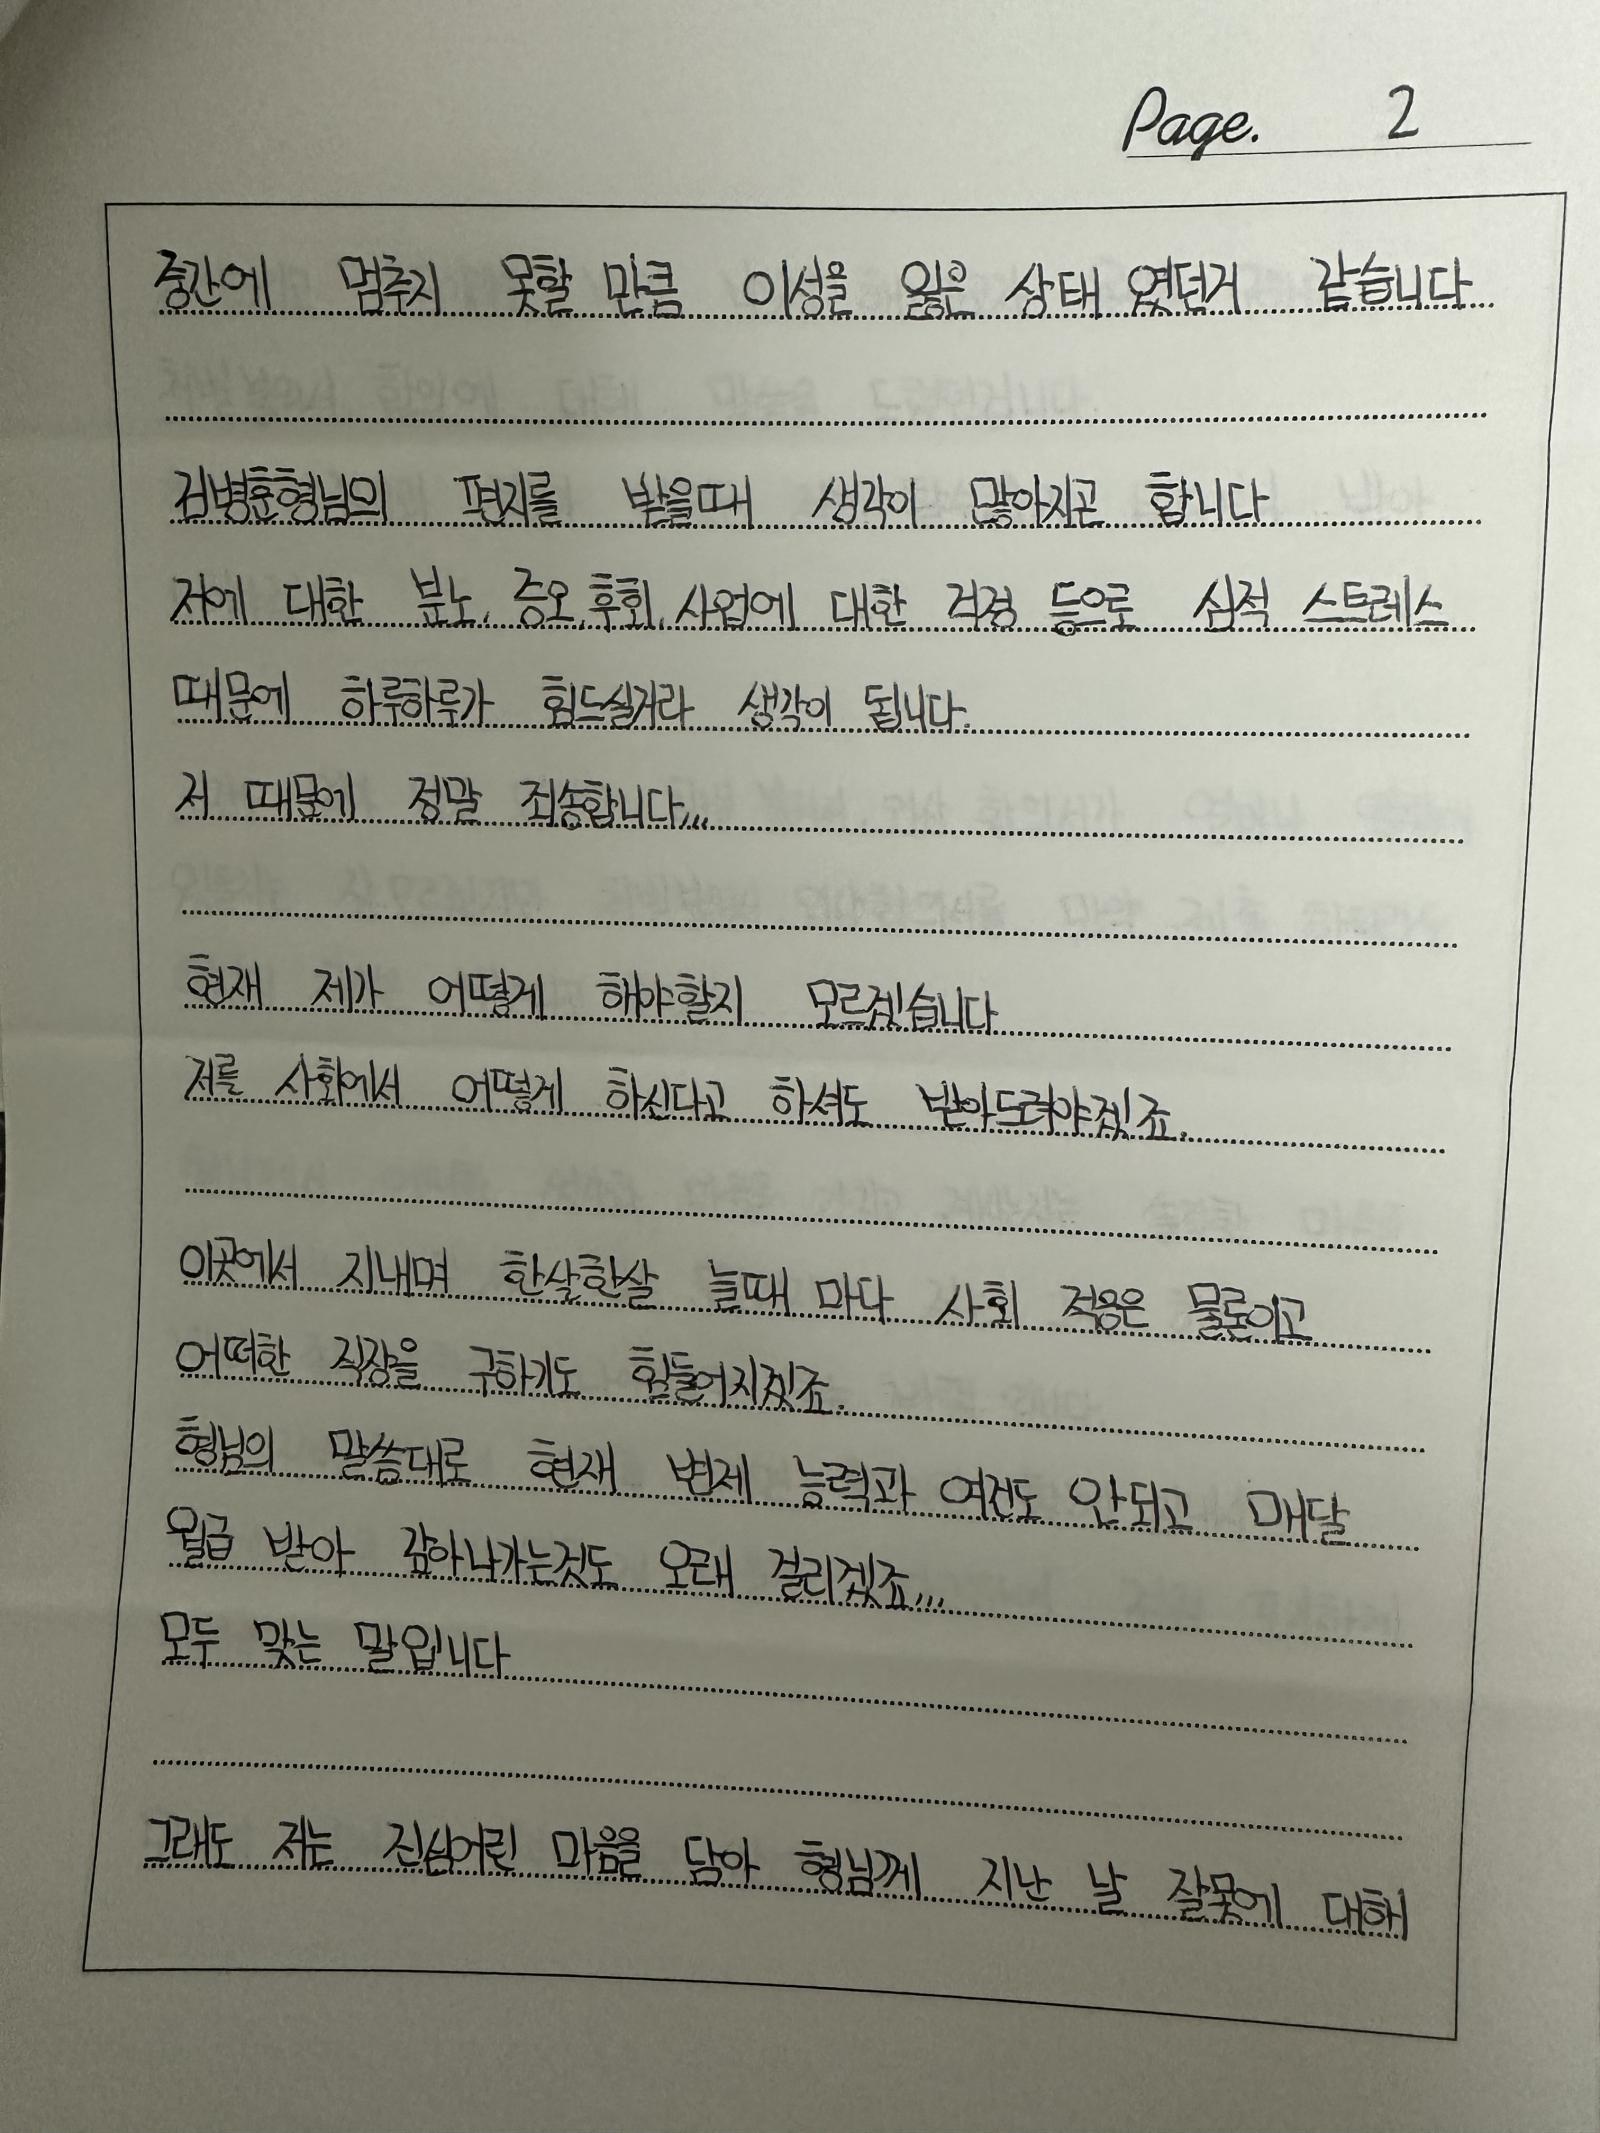 Page. 2
중간에 멈추지 못할 만큼 이성을 잃은 상태 였던거 같습니다...
김병훈형님의 편지를 받을때 생각이 많아지곤 합니다
저에 대한 분노, 증오, 후회, 사업에 대한 걱정 등으로 심적 스트레스
때문에 하루하루가 힘드실거라 생각이 됩니다.
저 때문에 정말 죄송합니다...
현재 제가 어떻게 해야할지 모르겠습니다
저를 사회에서 어떻게 하신다고 하셔도 받아드려야겠죠.
이곳에서 지내며 한살한살 늘때 마다 사회 적응은 물론이고
어떠한 직장을 구하기도 힘들어지겠죠.
형님의 말씀대로 현재 변제 능력과 여건도 안되고 매달
월급 받아 갚아나가는것도 오래 걸리겠죠...
모두 맞는 말입니다
그래도 저는 진심어린 마음을 담아 형님께 지난 날 잘못에 대해